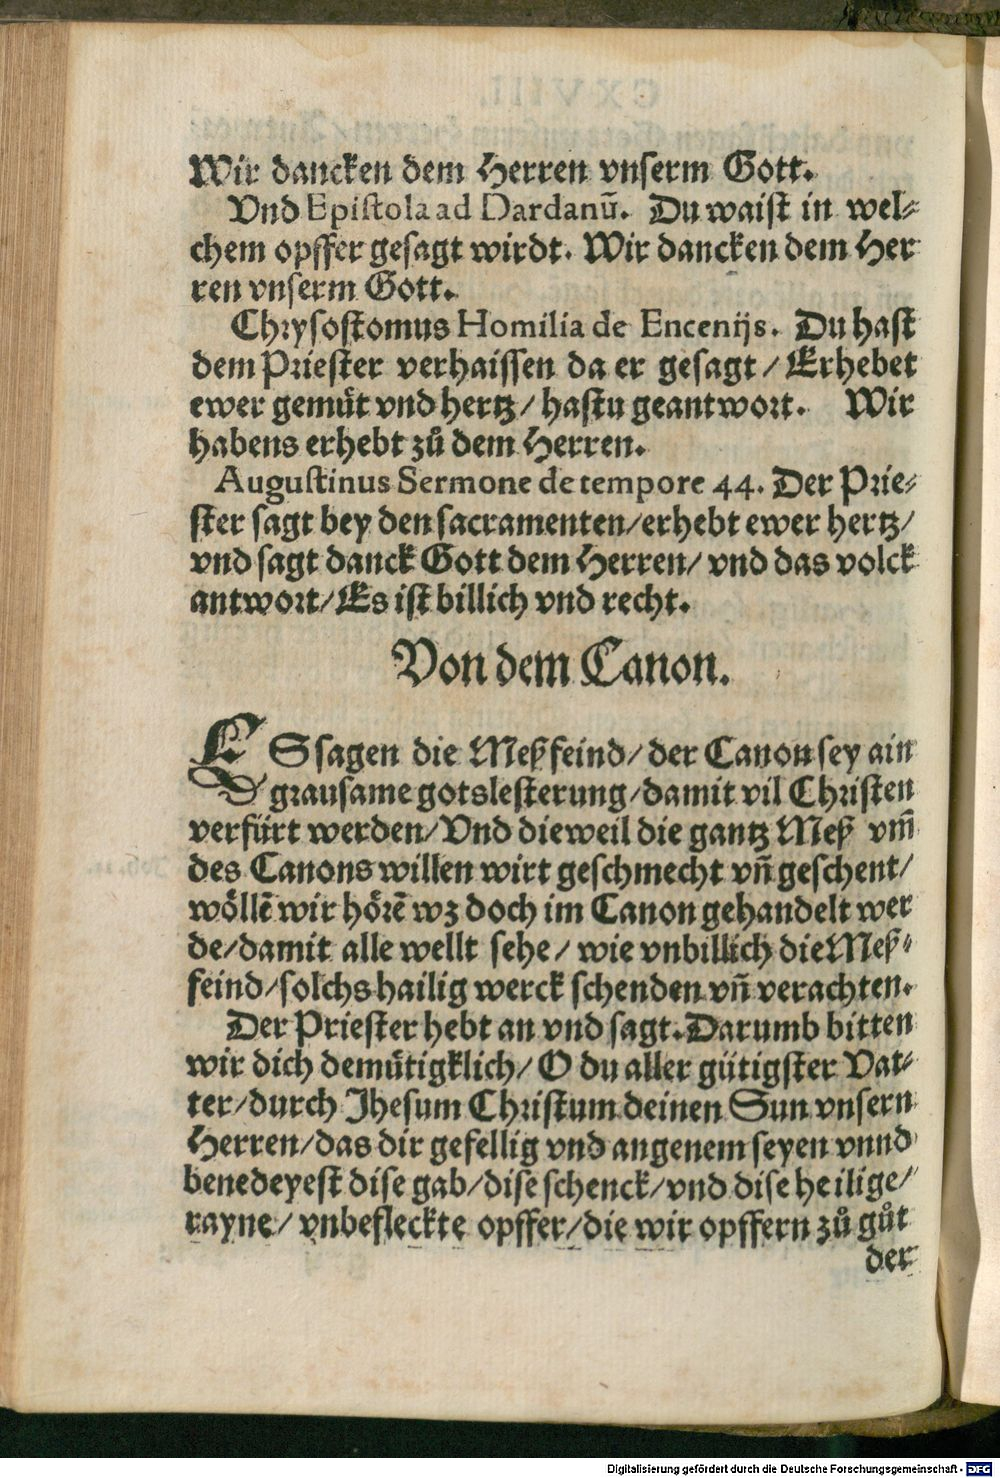 Wir dancken dem Herren vnserm Gott.
Vnd Epistola ad Dardanū. Du waist in wel-
chem opffer gesagt wirdt. Wir dancken dem Her
ren vnserm Gott.
Chrysostomus Homilia de Encenijs. Du hast
dem Priester verhaissen da er gesagt / Erhebet
ewer gemuͤt vnd hertz / hastu geantwort. Wir
habens erhebt zuͦ dem Herren.
Augustinus Sermone de tempore 44. Der Prie-
ster sagt bey den sacramenten/erhebt ewer hertz/
vnd sagt danck Gott dem Herren/ vnd das volck
antwort/Es ist billich vnd recht.
Von dem Canon.
ES sagen die Meßfeind/ der Canon sey ain
grausame gotslesterung/damit vil Christen
verfürt werden/Vnd dieweil die gantz Meß vm̄
des Canons willen wirt geschmecht vn̄ geschent/
woͤllē wir hoͤrē wz doch im Canon gehandelt wer
de/damit alle wellt sehe/ wie vnbillich die Meß-
feind/solchs hailig werck schenden vn̄ verachten.
Der Priester hebt an vnd sagt. Darumb bitten
wir dich demuͤtigklich/ O du aller gütigster Vat-
ter/durch Jhesum Christum deinen Sun vnsern
Herren/das dir gefellig vnd angenem seyen vnnd
benedeyest dise gab/dise schenck/vnd dise heilige/
rayne/ vnbefleckte opffer/die wir opffern zuͦ guͦt
der
Digitalisierung gefördert durch die Deutsche Forschungsgemeinschaft - DFG